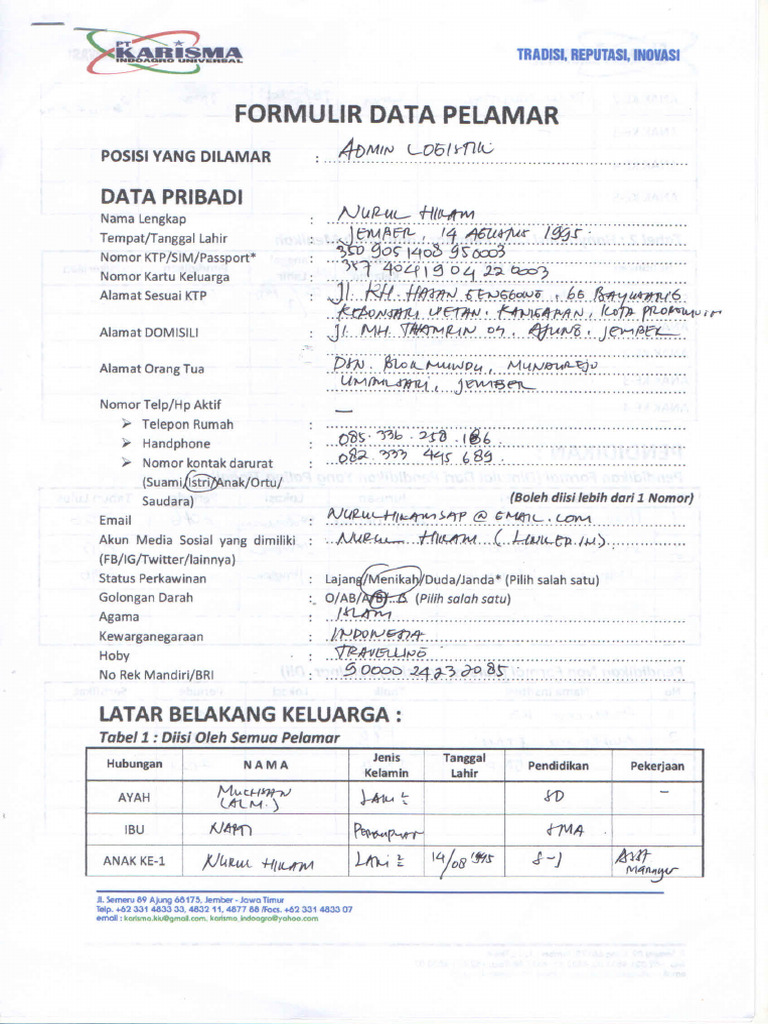 PT
KARISMA
INDOAGRO UNIVERSAL
TRADISI, REPUTASI, INOVASI
FORMULIR DATA PELAMAR
POSISI YANG DILAMAR : ADMIN LOGISTIK
DATA PRIBADI
Nama Lengkap : NURUL HIKAM
Tempat/Tanggal Lahir : JEMBER, 14 AGUSTUS 1995
Nomor KTP/SIM/Passport* : 3509051408950003
Nomor Kartu Keluarga : 3574041904220003
Alamat Sesuai KTP : Jl. KH. HASAN GENGGONG, 66
KEBONSARI WETAN. KANIGARAN, KOTA PROBOLINGGO
Alamat DOMISILI : Jl. MH. THAMRIN 04, AJUNG. JEMBER
Alamat Orang Tua : DSN. BLOK MUNDU, MUNDUREJO
UMBULSARI, JEMBER
Nomor Telp/Hp Aktif —
➢ Telepon Rumah :
➢ Handphone : 085.336.258.186
➢ Nomor kontak darurat : 082.333 445 689.
(Suami/Istri/Anak/Ortu/
Saudara) (Boleh diisi lebih dari 1 Nomor)
Email : NURULHIKAMSAP @ GMAIL.COM
Akun Media Sosial yang dimiliki : NURUL HIKAM (LINKED.IN)
(FB/IG/Twitter/lainnya)
Status Perkawinan : Lajang/Menikah/Duda/Janda* (Pilih salah satu)
Golongan Darah : O/AB/A/B B (Pilih salah satu)
Agama : ISLAM
Kewarganegaraan : INDONESIA
Hoby : TRAVELLING
No Rek Mandiri/BRI : 90000 24232085
LATAR BELAKANG KELUARGA :
Tabel 1 : Diisi Oleh Semua Pelamar
Hubungan N A M A Jenis Kelamin Tanggal Lahir Pendidikan Pekerjaan
AYAH MUCHSAN (ALM.) LAKI² SD –
IBU Perempuan SMA
ANAK KE-1 NURUL HIKAM LAKI² 14/08 1995 S-1 ASST Manager
Jl. Semeru 89 Ajung 68175, Jember - Jawa Timur
Telp. +62 331 4833 33, 4832 11, 4877 88 /Facs. +62 331 4833 07
email : karisma.kiu@gmail.com, karisma_indoagro@yahoo.com